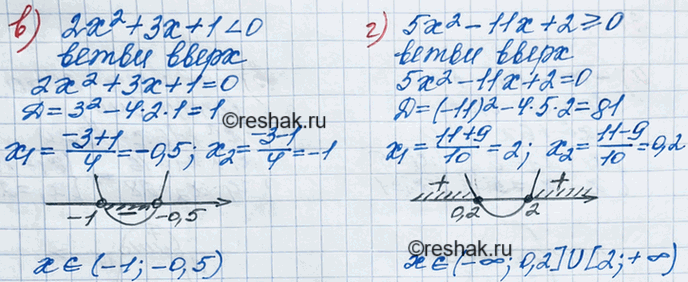 в) 2x² + 3x + 1 < 0
ветви вверх
2x² + 3x + 1 = 0
Д = 3² - 4·2·1 = 1
x₁ = (-3+1)/4 = -0,5; x₂ = (-3-1)/4 = -1
-1 - -0,5
x ∈ (-1; -0,5)
г) 5x² - 11x + 2 ≥ 0
ветви вверх
5x² - 11x + 2 = 0
Д = (-11)² - 4·5·2 = 81
x₁ = (11+9)/10 = 2; x₂ = (11-9)/10 = 0,2
+ +
0,2 2
x ∈ (-∞; 0,2] U [2; +∞)
©reshak.ru
©reshak.ru